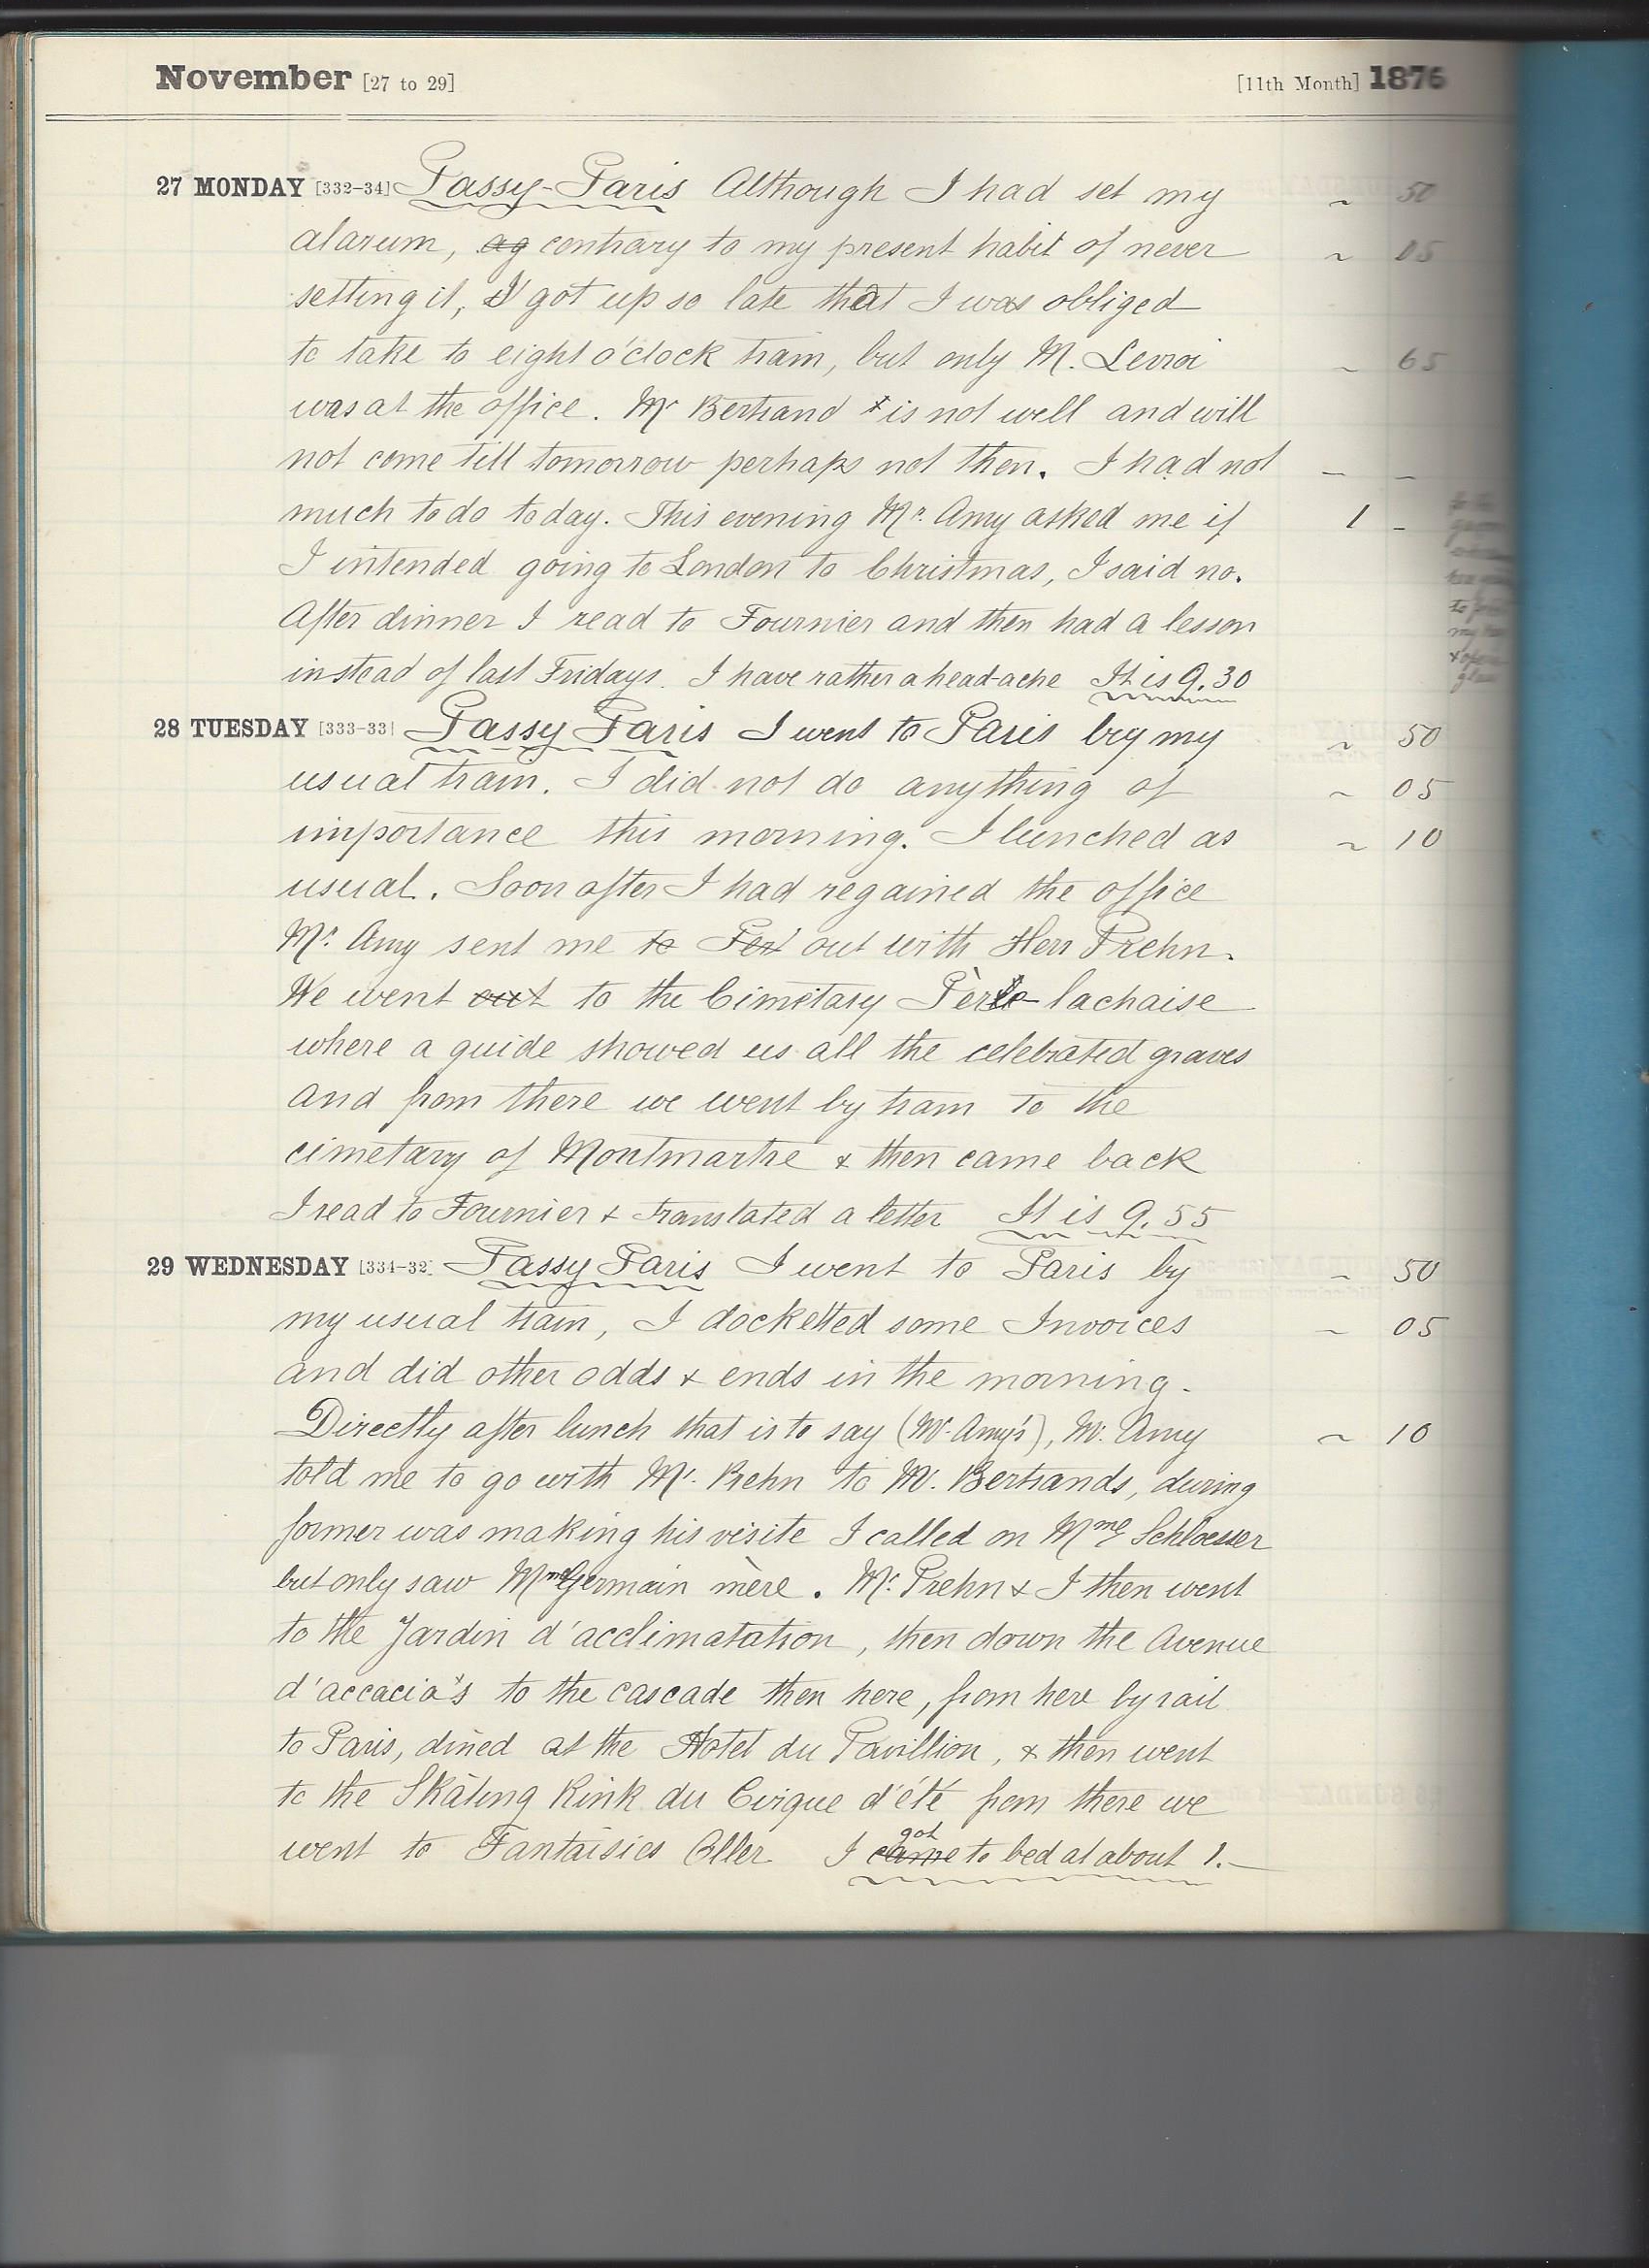 November [27 to 29] [11th Month] 1876
27 MONDAY [332-34] Passy-Paris Although I had set my ~ 50
alarum, ag contrary to my present habit of never ~ 05
setting it, I got up so late that I was obliged
to take to eight o'clock tram, but only M. Levroi ~ 65
was at the office. Mr Bertrand is not well and will
not come till tomorrow perhaps not then. I had not – –
much to do today. This evening Mr. Amy asked me if 1 –
I intended going to London to Christmas, I said no.
After dinner I read to Fournier and then had a lesson
instead of last Fridays. I have rather a head-ache It is 9.30
28 TUESDAY [333-33] Passy Paris I went to Paris by my ~ 50
usual tram. I did not do anything of ~ 05
importance this morning. I lunched as ~ 10
usual. Soon after I had regained the office
Mr. Amy sent me to Per out with Herr Prehn.
We went out to the Cimetary Père lachaise
where a guide showed us all the celebrated graves
and from there we went by tram to the
cimetary of Montmartre & then came back
I read to Fournier & translated a letter It is 9.55
29 WEDNESDAY [334-32] Passy Paris I went to Paris by ~ 50
my usual tram, I docketted some Invoices ~ 05
and did other odds & ends in the morning.
Directly after lunch that is to say (Mr. Amy's), Mr. Amy ~ 10
told me to go with Mr. Prehn to Mr. Bertrands, during
former was making his visite I called on Mme Schloesser
but only saw Mme Germain mère. Mr. Prehn & I then went
to the Jardin d'acclimatation, then down the Avenue
d'accacia's to the cascade then here, from here by rail
to Paris, dined at the Hotel du Pavillion, & then went
to the Skating Rink du Cirque d'été from there we
went to Fantaisies Oller. I came got to bed at about 1.–